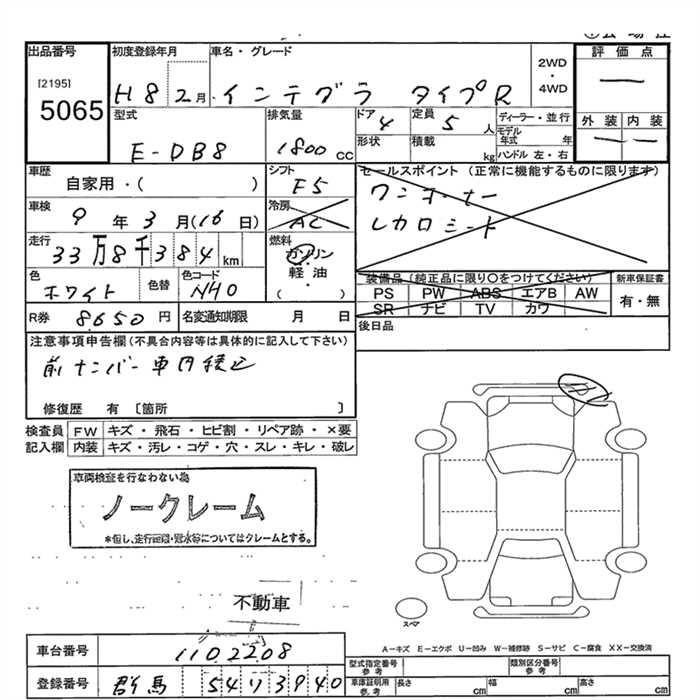 出品番号
[2195]
5065
初度登録年月
H8 2月
車名・グレード
インテグラ タイプR
2WD
・
4WD
評価点
—
外装 内装
— —
型式
E-DB8
排気量
1800 cc
ドア
4
定員
5 人
ディーラー・並行
モデル年式 年
形状
積載 kg
ハンドル 左・右
車歴
自家用・( )
シフト
F5
セールスポイント (正常に機能するものに限ります)
ワンオーナー
レカロシート
車検
9 年 3 月 (16 日)
冷房
AC
走行
33万8千384 km
燃料
ガソリン
軽油
( )
色
ホワイト
色替
色コード
NH0
装備品 (純正品に限り○をつけてください)
PS PW ABS エアB AW
SR ナビ TV カワ
新車保証書
有・無
R券 8650 円
名変通知期限 月 日
後日品
注意事項申告欄 (不具合内容等は具体的に記入して下さい)
前ナンバー車内積込
修復歴 有 〔箇所 〕
検査員 FW キズ・飛石・ヒビ割・リペア跡・×要
記入欄 内装 キズ・汚レ・コゲ・穴・スレ・キレ・破レ
車両検査を行なわない為
ノークレーム
*但し、走行距離・冠水等についてはクレームとする。
不動車
スペア
A−キズ E−エクボ U−凹み W−補修跡 S−サビ C−腐食 XX−交換済
車台番号 1102208
型式指定番号 参考
類別区分番号 参考
登録番号 群馬
車庫証明用 参考
長さ cm 幅 cm 高さ cm